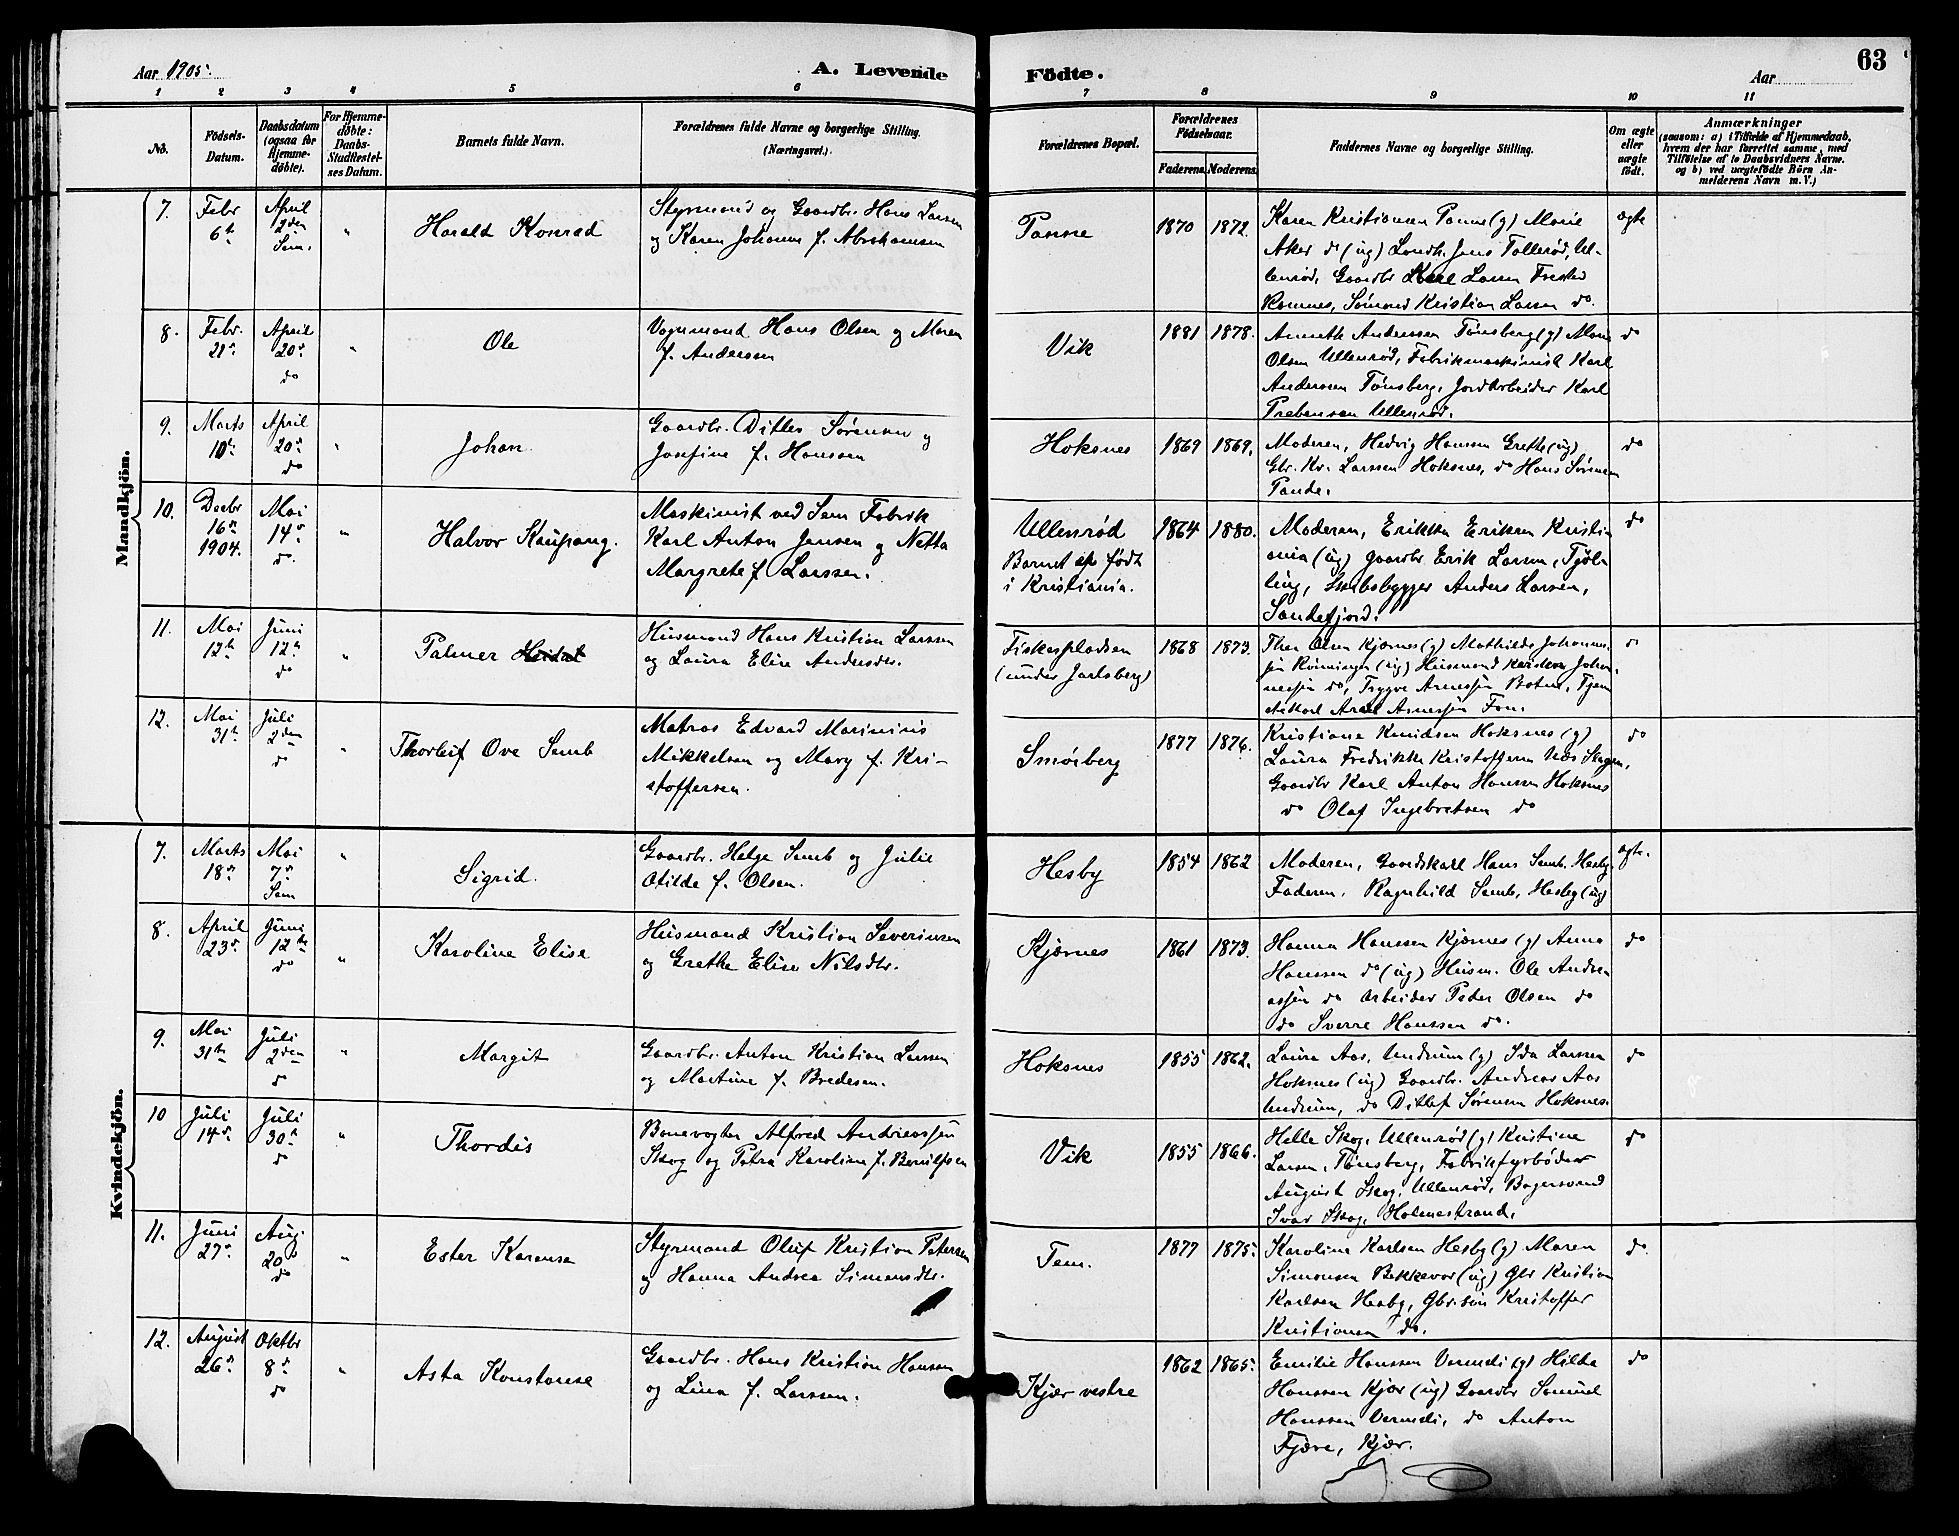 Aar 1905.
A. Levende
Födte.
Aar
63
1 2 3 4 5 6 7 8 9 10 11
No.
Födsels-
Datum.
Daabsdatum
(ogsaa for
Hjemme-
döbte).
For Hjemme-
döbte:
Daabs-
Stadfæstel-
ses Datum.
Barnets fulde Navn.
Forældrenes fulde Navne og borgerlige Stilling.
(Næringsvei.)
Forældrenes Bopæl.
Forældrenes
Födselsaar.
Faderens. Moderens.
Faddernes Navne og borgerlige Stilling.
Om ægte
eller
uægte
födt.
Anmærkninger
(saasom: a) i Tilfælde af Hjemmedaab,
hvem der har forrettet samme, med
Tilföielse af to Daabsvidners Navne.
og b) ved uægtefödte Börn An-
melderens Navn m. V.)
Mandkjön.
7. Febr 6te April 2den Sem. " Harald Konrad
Styrmand og Gaardbr. Hans Larsen
og Karen Johanne f. Abrahamsen
Tanne 1870 1872.
Karen Kristiansen Tanne (g) Marie
Aker do (ug) Landh. Jens Tollerød, Ul-
lenrød, Gaardbr Karl Larsen Trester
Ramnes, Sømand Kristian Larsen do.
ægte
8. Febr. 21de April 20de do " Ole
Vognmand Hans Olsen og Maren
f. Andersen
Vik 1881 1878.
Anneth Andersen Tønsberg (g) Marie
Olsen Ullenrød, Fabrikmaskinist Karl
Andersen Tønsberg, Jordarbeider Karl
Prebensen Ullenrød.
do
9. Marts 10de April 20de do " Johan.
Gaardbr. Ditlev Sørensen og
Josefine f. Hanssen
Hoksnes 1869 1869.
Moderen, Hedvig Hanssen Grette (ug)
Gbr. Kr. Larssen Hoksnes, do Hans Sørensen
Tande.
do
10. Decbr 16de 1904. Mai 14de do. " Halvor Kaupang.
Maskinist ved Sem Fabrik
Karl Anton Jensen og Netta
Margrete f. Larssen.
Ullenrød
Barnet er født
i Kristiania.
1864 1880.
Moderen, Erikka Eriksen Kristi-
ania (ug) Gaardbr Erik Larsen, Tjøl-
ling, Skibsbygger Anders Larsen,
Sandefjord.
do
11. Mai 12te Juni 12te do " Palmer
Husmand Hans Kristian Larssen
og Laura Elise Andersdtr.
Fiskerpladsen
(under Jarlsberg)
1868 1873.
Thea Olsen Kjærnes (g) Mathilde Johannes-
sen Kvinningen (ug) Husmand Karsten Johan-
nessen do, Trygve Arnessen Botne, Tjen
estekarl Arne Arnessen Fon.
do
12. Mai 31te Juli 2den do " Thorleif Ove Semb
Matros Edvard Marinius
Mikkelsen og Mary f. Kri-
stoffersen.
Smørberg 1877 1876.
Kristiane Knudsen Hoksnes (g)
Laura Fredrikke Kristoffersen Næs Skagen,
Gaardbr Karl Anton Hansen Hoksnes
do Olaf Ingebretsen do
do
Kvindekjön.
7. Marts 18de Mai 7de Sem " Sigrid.
Gaardbr. Helge Semb og Julie
Otilde f. Olsen.
Hesby 1854 1862
Moderen, Gaardskarl Hans Semb, Hesby,
Faderen, Ragnhild Semb, Hesby (ug)
ægte.
8. April 23de Juni 12te do " Karoline Elise
Husmand Kristian Severinsen
og Grethe Elise Nilsdtr.
Kjærnes 1861 1873.
Hanna Hanssen Kjærnes (g) Anna
Hanssen do (ug) Husm. Ole Andre-
assen do Arbeider Peder Olsen do
do Sverre Hanssen do.
do
9. Mai 31te Juli 2den do " Margit
Gaardbr. Anton Kristian Larssen
og Martine f. Bredesen.
Hoksnes 1855 1862.
Laura Aas, Undrum (g) Ida Larssen
Hoksnes (ug) Gaardbr. Andreas Aas
Undrum, do Ditlef Sørensen Hoksnes.
do
10 Juli 14de Juli 30te do " Thordis
Banevogter Alfred Andreassen
Skog og Petra Karoline f. Berulfsen
Vik 1855 1866.
Helle Skog, Ullenrød (g) Kristine
Larsen, Tønsberg, Fabrikfyrbøder
August Skog, Ullenrød, Bagersvend
Ivar Skog, Holmestrand.
do
11. Juni 27de Aug. 20de do " Ester Karense
Styrmand Oluf Kristian Petersen
og Hanna Andrea Simensdtr.
Tem. 1877 1875.
Karoline Karlsen Hesby (g) Maren
Simonsen Bekkevar (ug) Gbr Kristian
Karlsen Hesby, Gbr.søn Kristoffer
Kristiansen do.
do.
12. August 26de Oktbr 8de do " Asta Konstanse
Gaardbr. Hans Kristian Hansen
og Lina f. Larssen.
Kjær vestre 1862 1865.
Emilie Hanssen Vermeli (g) Hilda
Hanssen Kjær (ug) Gaardbr Samuel
Hanssen Vermeli, do Anton
Fjære, Kjær.
do